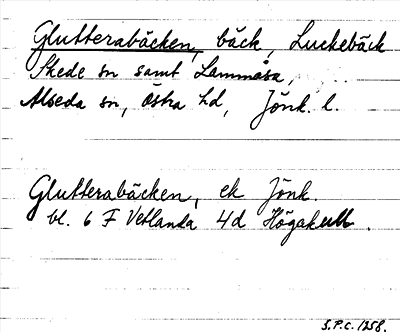 Glutterabäcken, bäck, Luckebäck
Skede sn samt Lammåsa,
Alseda sn, Östra hd, Jönk. l.
Glutterabäcken, ek Jönk.
bl. 6 F Vetlanda 4d Högakull.
S.P.C. 1258.